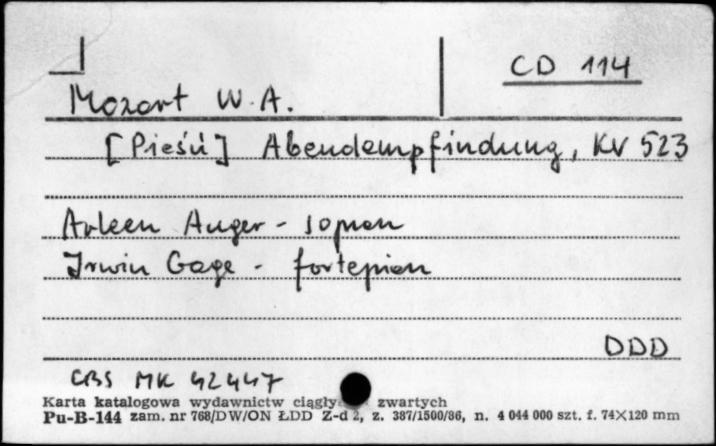 CD 114
Mozart W. A.
[Pieśń] Abendempfindung, KV 523
Arleen Auger - sopran
Irwin Gage - fortepian
DDD
CBS MK 42447
Karta katalogowa wydawnictw zwartych
Pu-B-144 zam. nr 768/DW/ON ŁDD Z-d 2, z. 387/1500/86, n. 4 044 000 szt. f. 74×120 mm